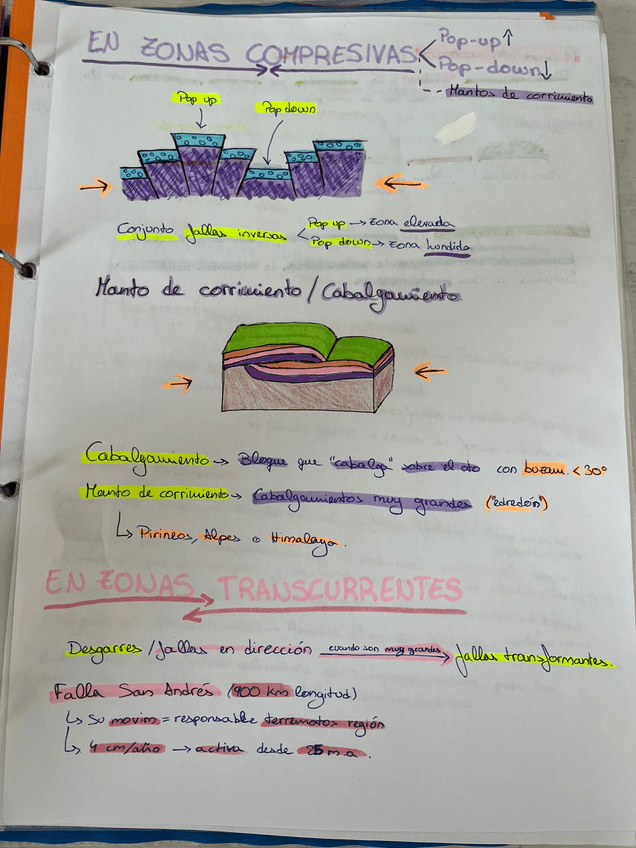 EN ZONAS COMPRESIVAS
Pop-up↑
Pop-down↓
Mantos de corrimiento
Pop up
Pop down
Conjunto fallas inversas
Pop up → zona elevada
Pop down → zona hundida
Manto de corrimiento / Cabalgamiento
Cabalgamiento → Bloque que "cabalga" sobre el otro con buzam. < 30°
Manto de corrimiento → Cabalgamientos muy grandes ("edredón")
↳ Pirineos, Alpes o Himalaya.
EN ZONAS TRANSCURRENTES
Desgarres / fallas en dirección cuando son muy grandes → fallas transformantes.
Falla San Andrés (900 km longitud)
↳ Su movim = responsable terremotos región
↳ 4 cm/año → activa desde 25 m.a.